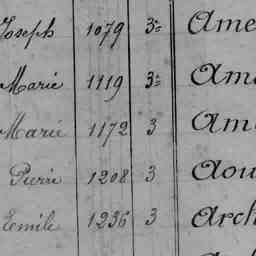 Joseph 1079 3= Ame
Marie 1119 3= Ama
Marie 1172 3 Am
Pierre 1208 3 Aou
Emile 1236 3 Arch